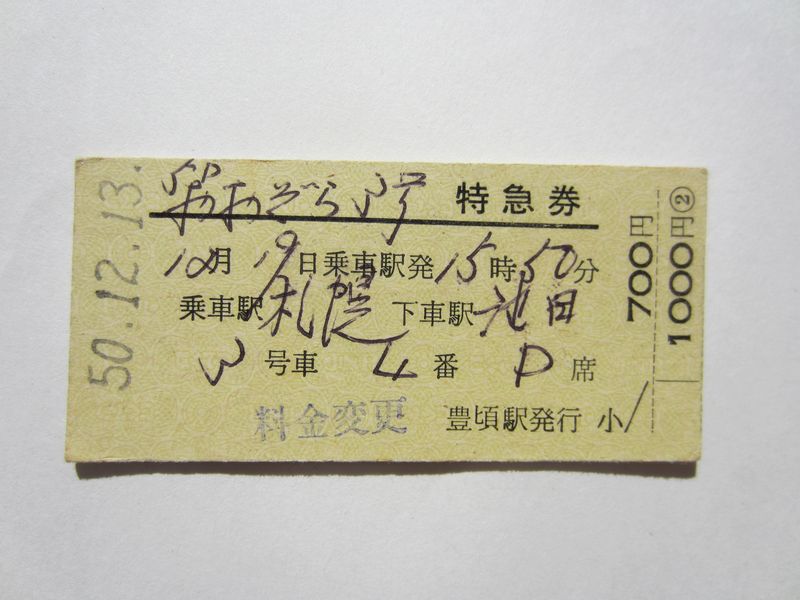 50.12.13.
おおぞら 号 特急券
12月 19日乗車駅発 15時50分
乗車駅 札幌 下車駅 池田
3号車 4番 D席
料金変更 豊頃駅発行 小
700円
1000円②